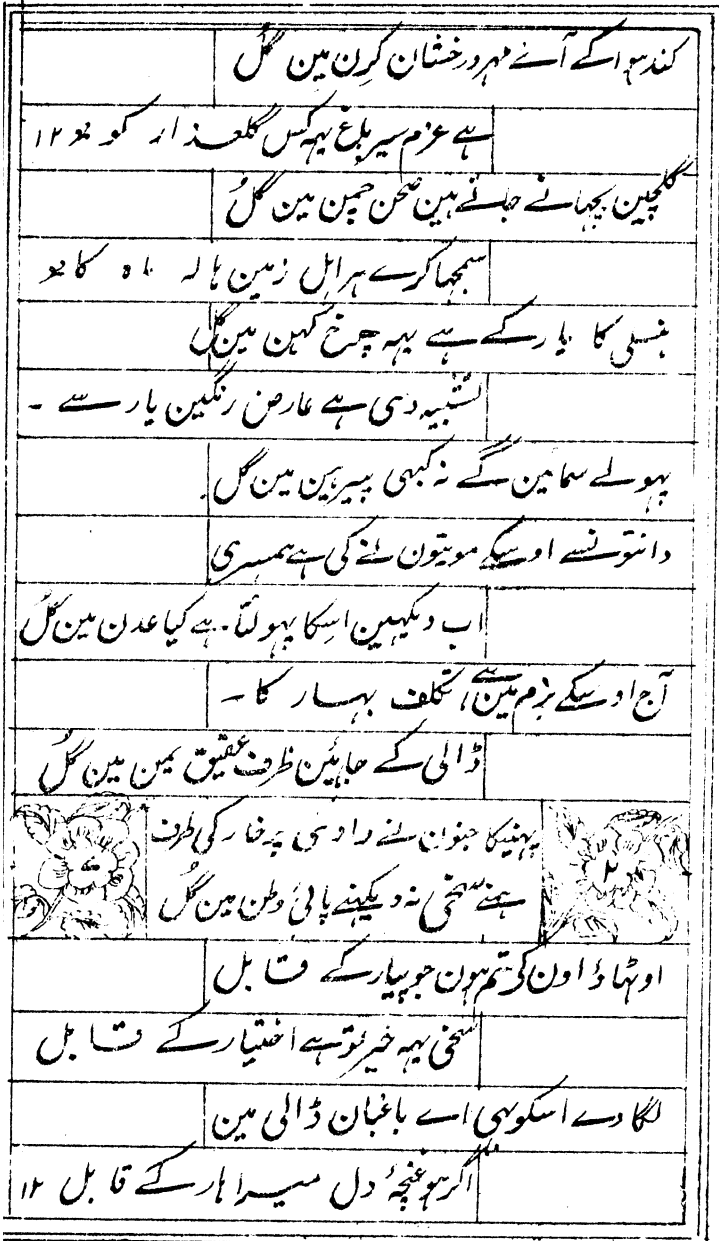 کند ہوا کے آنے مہر درخشان کرن مین گل
ہے عزم سیر باغ یہہ کس گلعذار کو ۱۲
گلچین بچہانے جاتے ہین صحن چمن مین گل
سمجہا کرے ہر اہل زمین ہالہ ماہ کا
ہنسلی کا یار کے ہے یہہ چرخ کہن مین گل
تشبیہ دی ہے عارض رنگین یار سے ۔
پہولے سماہین گے نہ کبہی پیرہن مین گل
دانتونسے اوسکے موتیون نے کی ہے ہمسری
اب دیکہین اسکا پہولتا ہے کیا عدن مین گل
آج اوسکے بزم مین ہے تکلف بہار کا ۔
ڈالی کے جاہئین ظرف عقیق یمن مین گل
پہینکا جنون نے وادی پرخار کی طرف
ہمنے سخی نہ دیکہنے پائی وطن مین گل
اوٹہاؤ اون کو تم ہون جو پیار کے قابل
سخی یہہ خیر تو ہے اختیار کے قابل
لگا دے اسکو بہی اے باغبان ڈالی مین
اگر ہو غنچۂ دل میرا ہار کے قابل ۱۲